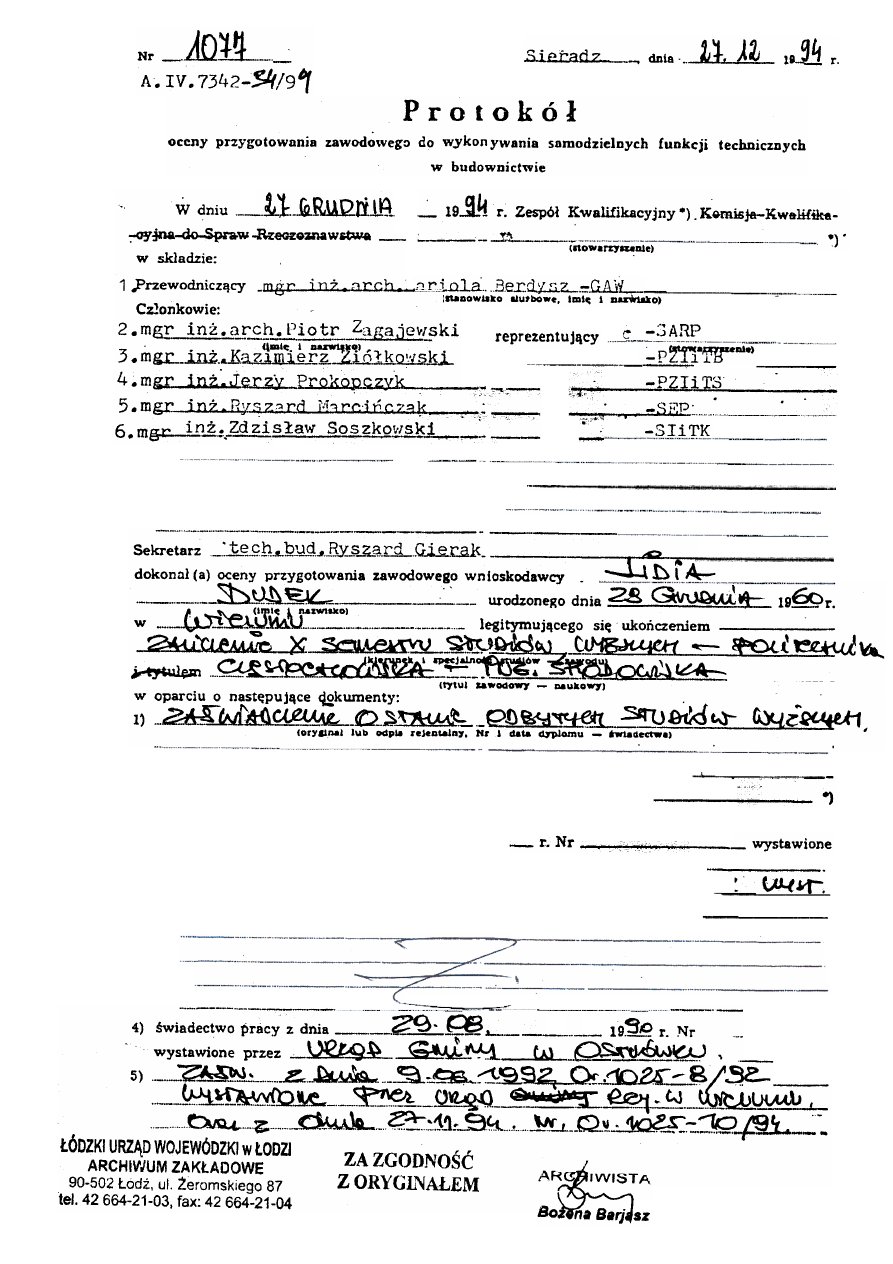 Nr 1077 Sieradz, dnia 27.12 1994 r.
A.IV.7342-34/94
Protokół
oceny przygotowania zawodowego do wykonywania samodzielnych funkcji technicznych
w budownictwie
W dniu 27 GRUDNIA 1994 r. Zespół Kwalifikacyjny *) Komisja Kwalifika-
cyjna do Spraw Rzeczoznawstwa *)
(stowarzyszenie)
w składzie:
1 Przewodniczący mgr inż.arch. ariola Berdysz -GAW
(stanowisko służbowe, imię i nazwisko)
Członkowie:
2. mgr inż.arch.Piotr Zagajewski reprezentujący -SARP
(imię i nazwisko) (stowarzyszenie)
3. mgr inż.Kazimierz Ziółkowski -PZIiTB
4. mgr inż.Jerzy Prokopczyk -PZIiTS
5. mgr inż.Ryszard Marcińczak -SEP
6. mgr inż.Zdzisław Soszkowski -SIiTK
Sekretarz tech.bud.Ryszard Gierak
dokonał(a) oceny przygotowania zawodowego wnioskodawcy LIDIA
DUDEK urodzonego dnia 28 Grudnia 1960 r.
(imię i nazwisko)
w Wieluniu legitymującego się ukończeniem
Zaliczenie X semestru studiów wyższych – Politechnika
(kierunek i specjalność studiów zawodu)
i tytułem Częstochowska –
(tytuł zawodowy — naukowy)
w oparciu o następujące dokumenty:
1) ZAŚWIADCZENIE O STANIE ODBYTYCH STUDIÓW WYŻSZYCH.
(oryginał lub odpis rejentalny, Nr i data dyplomu — świadectwa)
*)
r. Nr wystawione
4) świadectwo pracy z dnia 29.08. 1990 r. Nr
wystawione przez URZĄD GMINY W OSTRÓWKU.
5) ZAŚW. z dnia 9.06 1992 Or.1025-8/92
WYSTAWIONE PRZEZ URZĄD REJ. W WIELUNIU.
oraz z dnia 27.11.94. nr. Or.1025-10/94.
ŁÓDZKI URZĄD WOJEWÓDZKI w ŁODZI
ARCHIWUM ZAKŁADOWE
90-502 Łódź, ul. Żeromskiego 87
tel. 42 664-21-03, fax: 42 664-21-04
ZA ZGODNOŚĆ
Z ORYGINAŁEM
ARCHIWISTA
Bożena Barjasz